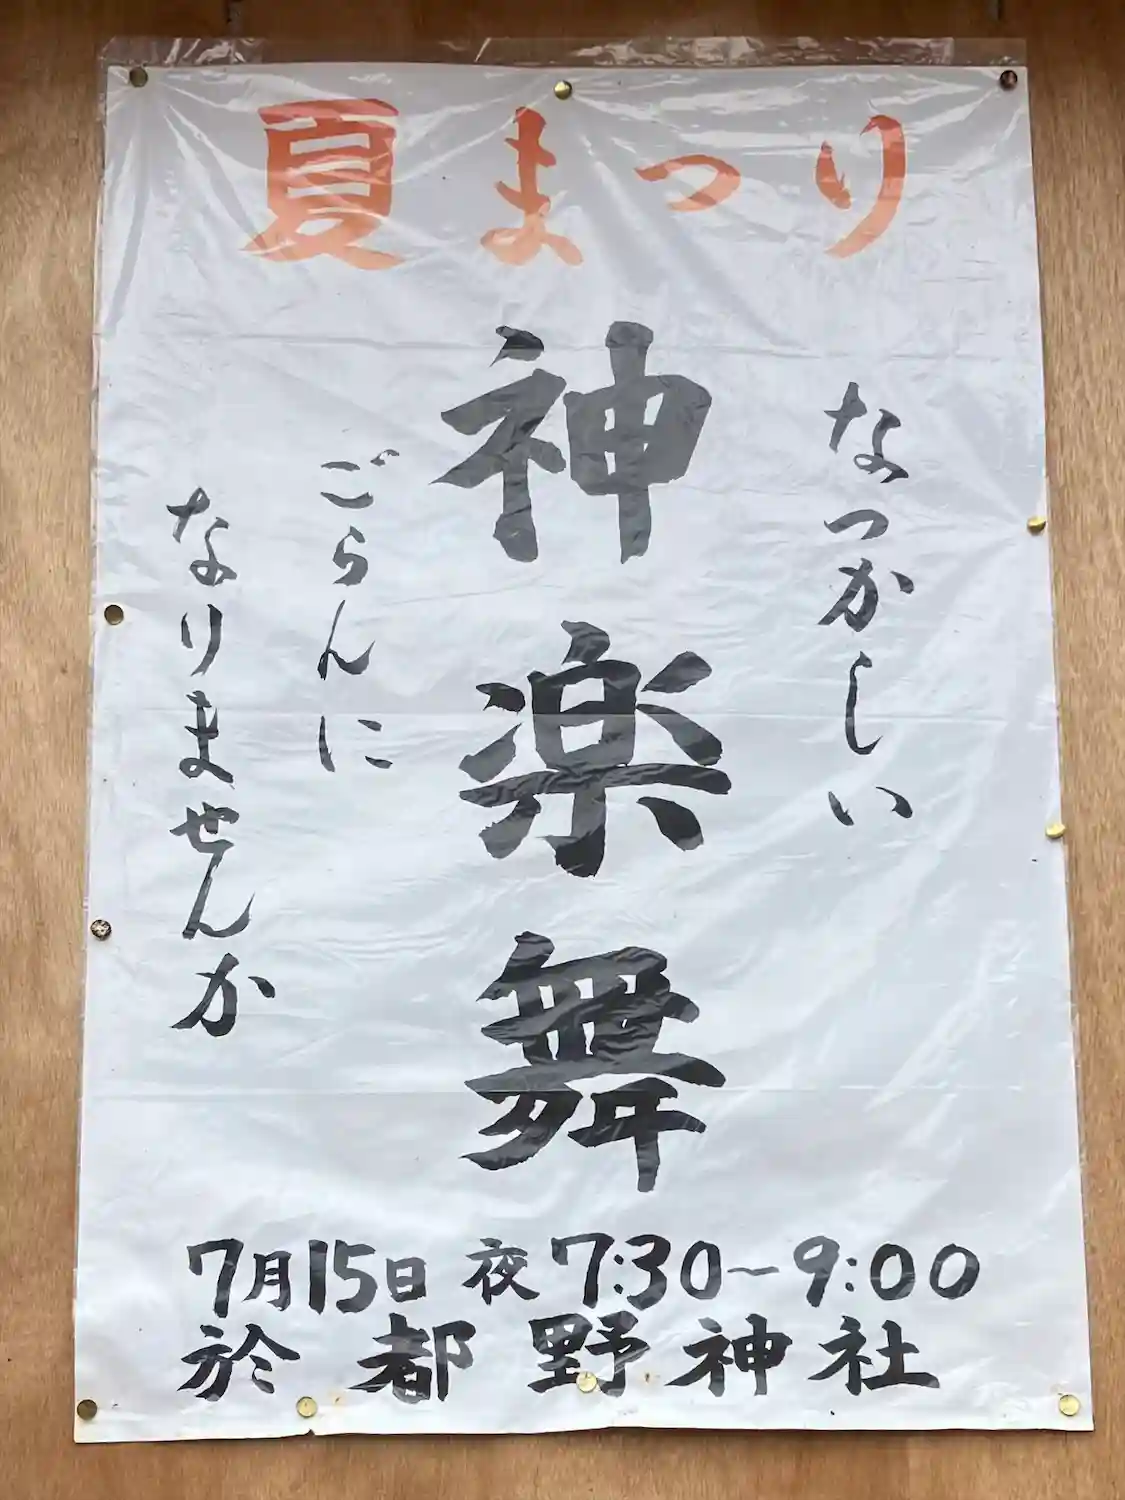 夏まつり
なつかしい
神楽舞
ごらんに
なりませんか
7月15日 夜 7:30～9:00
於 都野神社